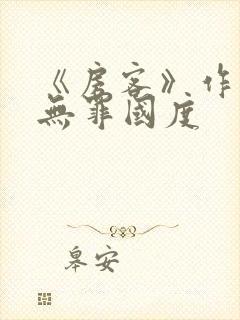 《房客》作
無罪國度
皋安